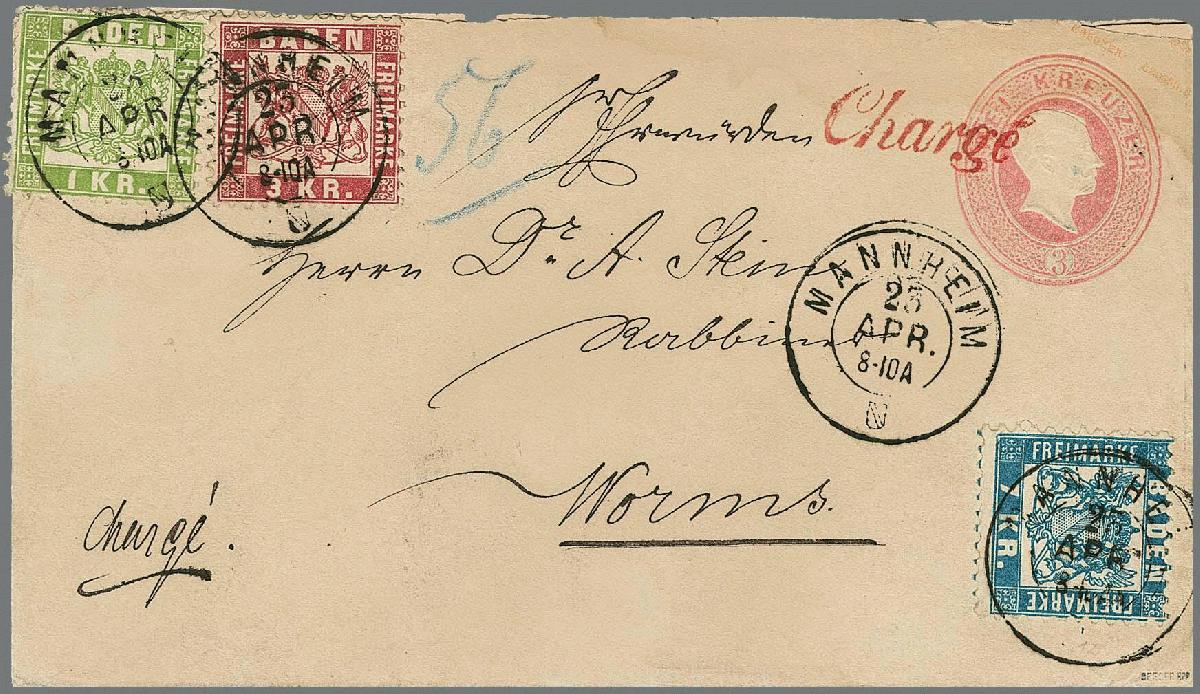 BADEN
FREIMARKE
FREIMARKE
1 KR.
BADEN
FREIMARKE
FREIMARKE
3 KR.
MANNHEIM
25
APR
8-10A
N
MANNHEIM
25
APR
8-10A
N
56
Sr Ehrwürden
Chargé
DREI KREUZER
3
Herrn Dr. A. Stein
Rabbiner
MANNHEIM
25
APR.
8-10A
N
Worms.
chargé.
FREIMARKE
BADEN
7 KR.
FREIMARKE
MANNHEIM
25
APR.
BEEGER BPP